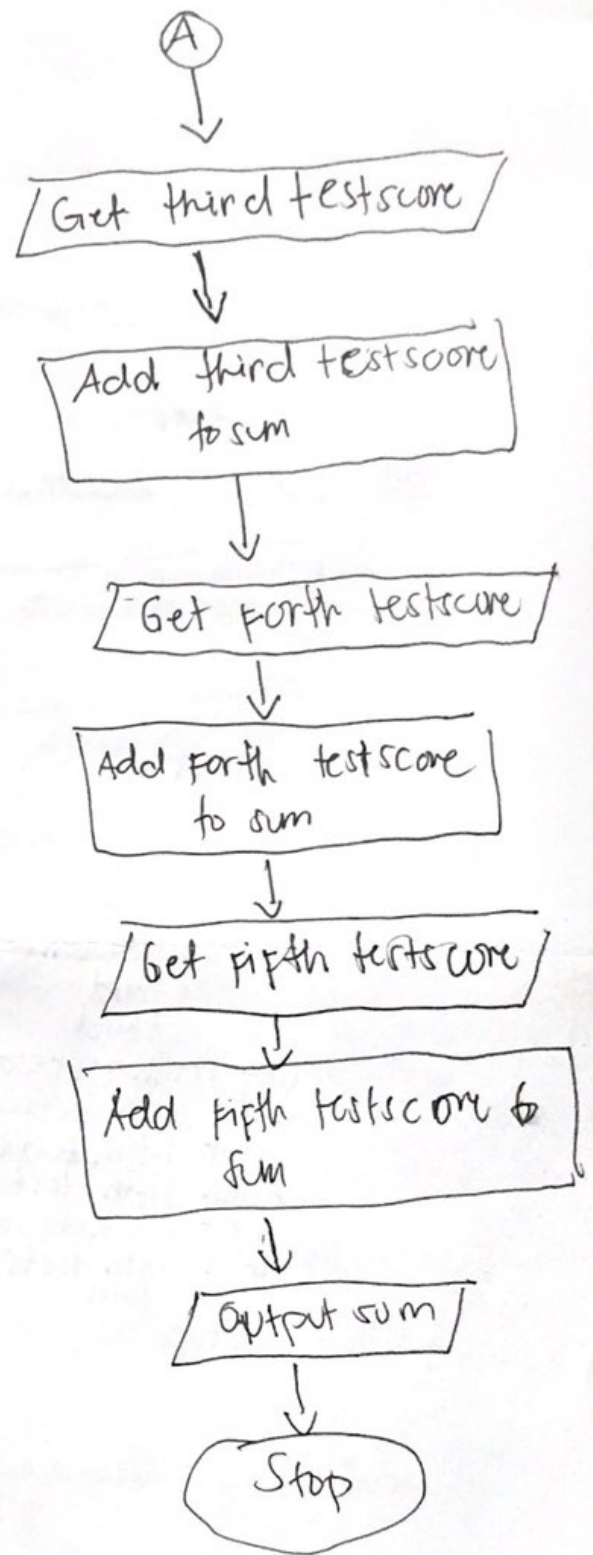 A
Get third testscore
Add third testscore
to sum
Get Forth testscore
Add Forth testscore
to sum
Get Fifth testscore
Add Fifth testscore to
sum
Output sum
Stop